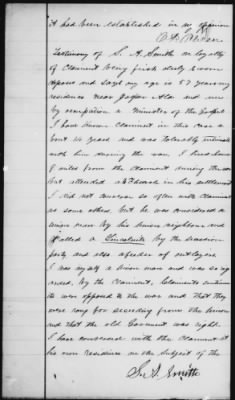 it had been established in my opinion
Testimony of S. A. Smith on loyalty
of Claimant being first duly sworn
deposes and says my age is 57 years my
residence near Jasper Ala and
my occupation a Minister of the Gospel
I have known Claimant in this case
about 14 years and was tolerably intimate
with him during the war. I lived here
miles from the Claimant during the war
but attended Church in his settlement
I did not converse so often with Claimant
as some others, but he was considered a
union man by his Union neighbors and
called a Lincolnite by the secession
party and also a feeder of outlayers
I was myself a Union man and was so reg
arded, by the Claimant, Claimants sentiments
were opposed to the war and that they
were wrong for seceding from the Union
and that the old Government was right.
I have conversed with the Claimant at
his own residence on the subject of the
Smith